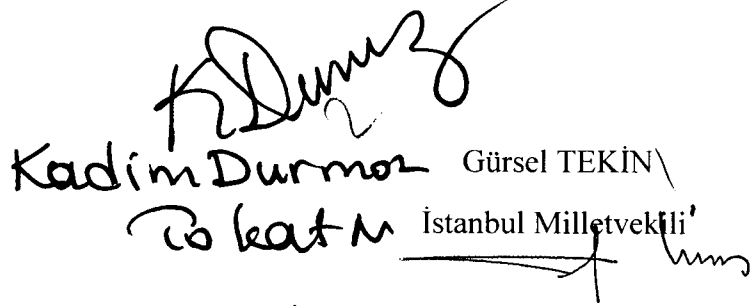 K Durmaz
Kadim Durmaz Gürsel TEKİN
Tokat M İstanbul Milletvekili